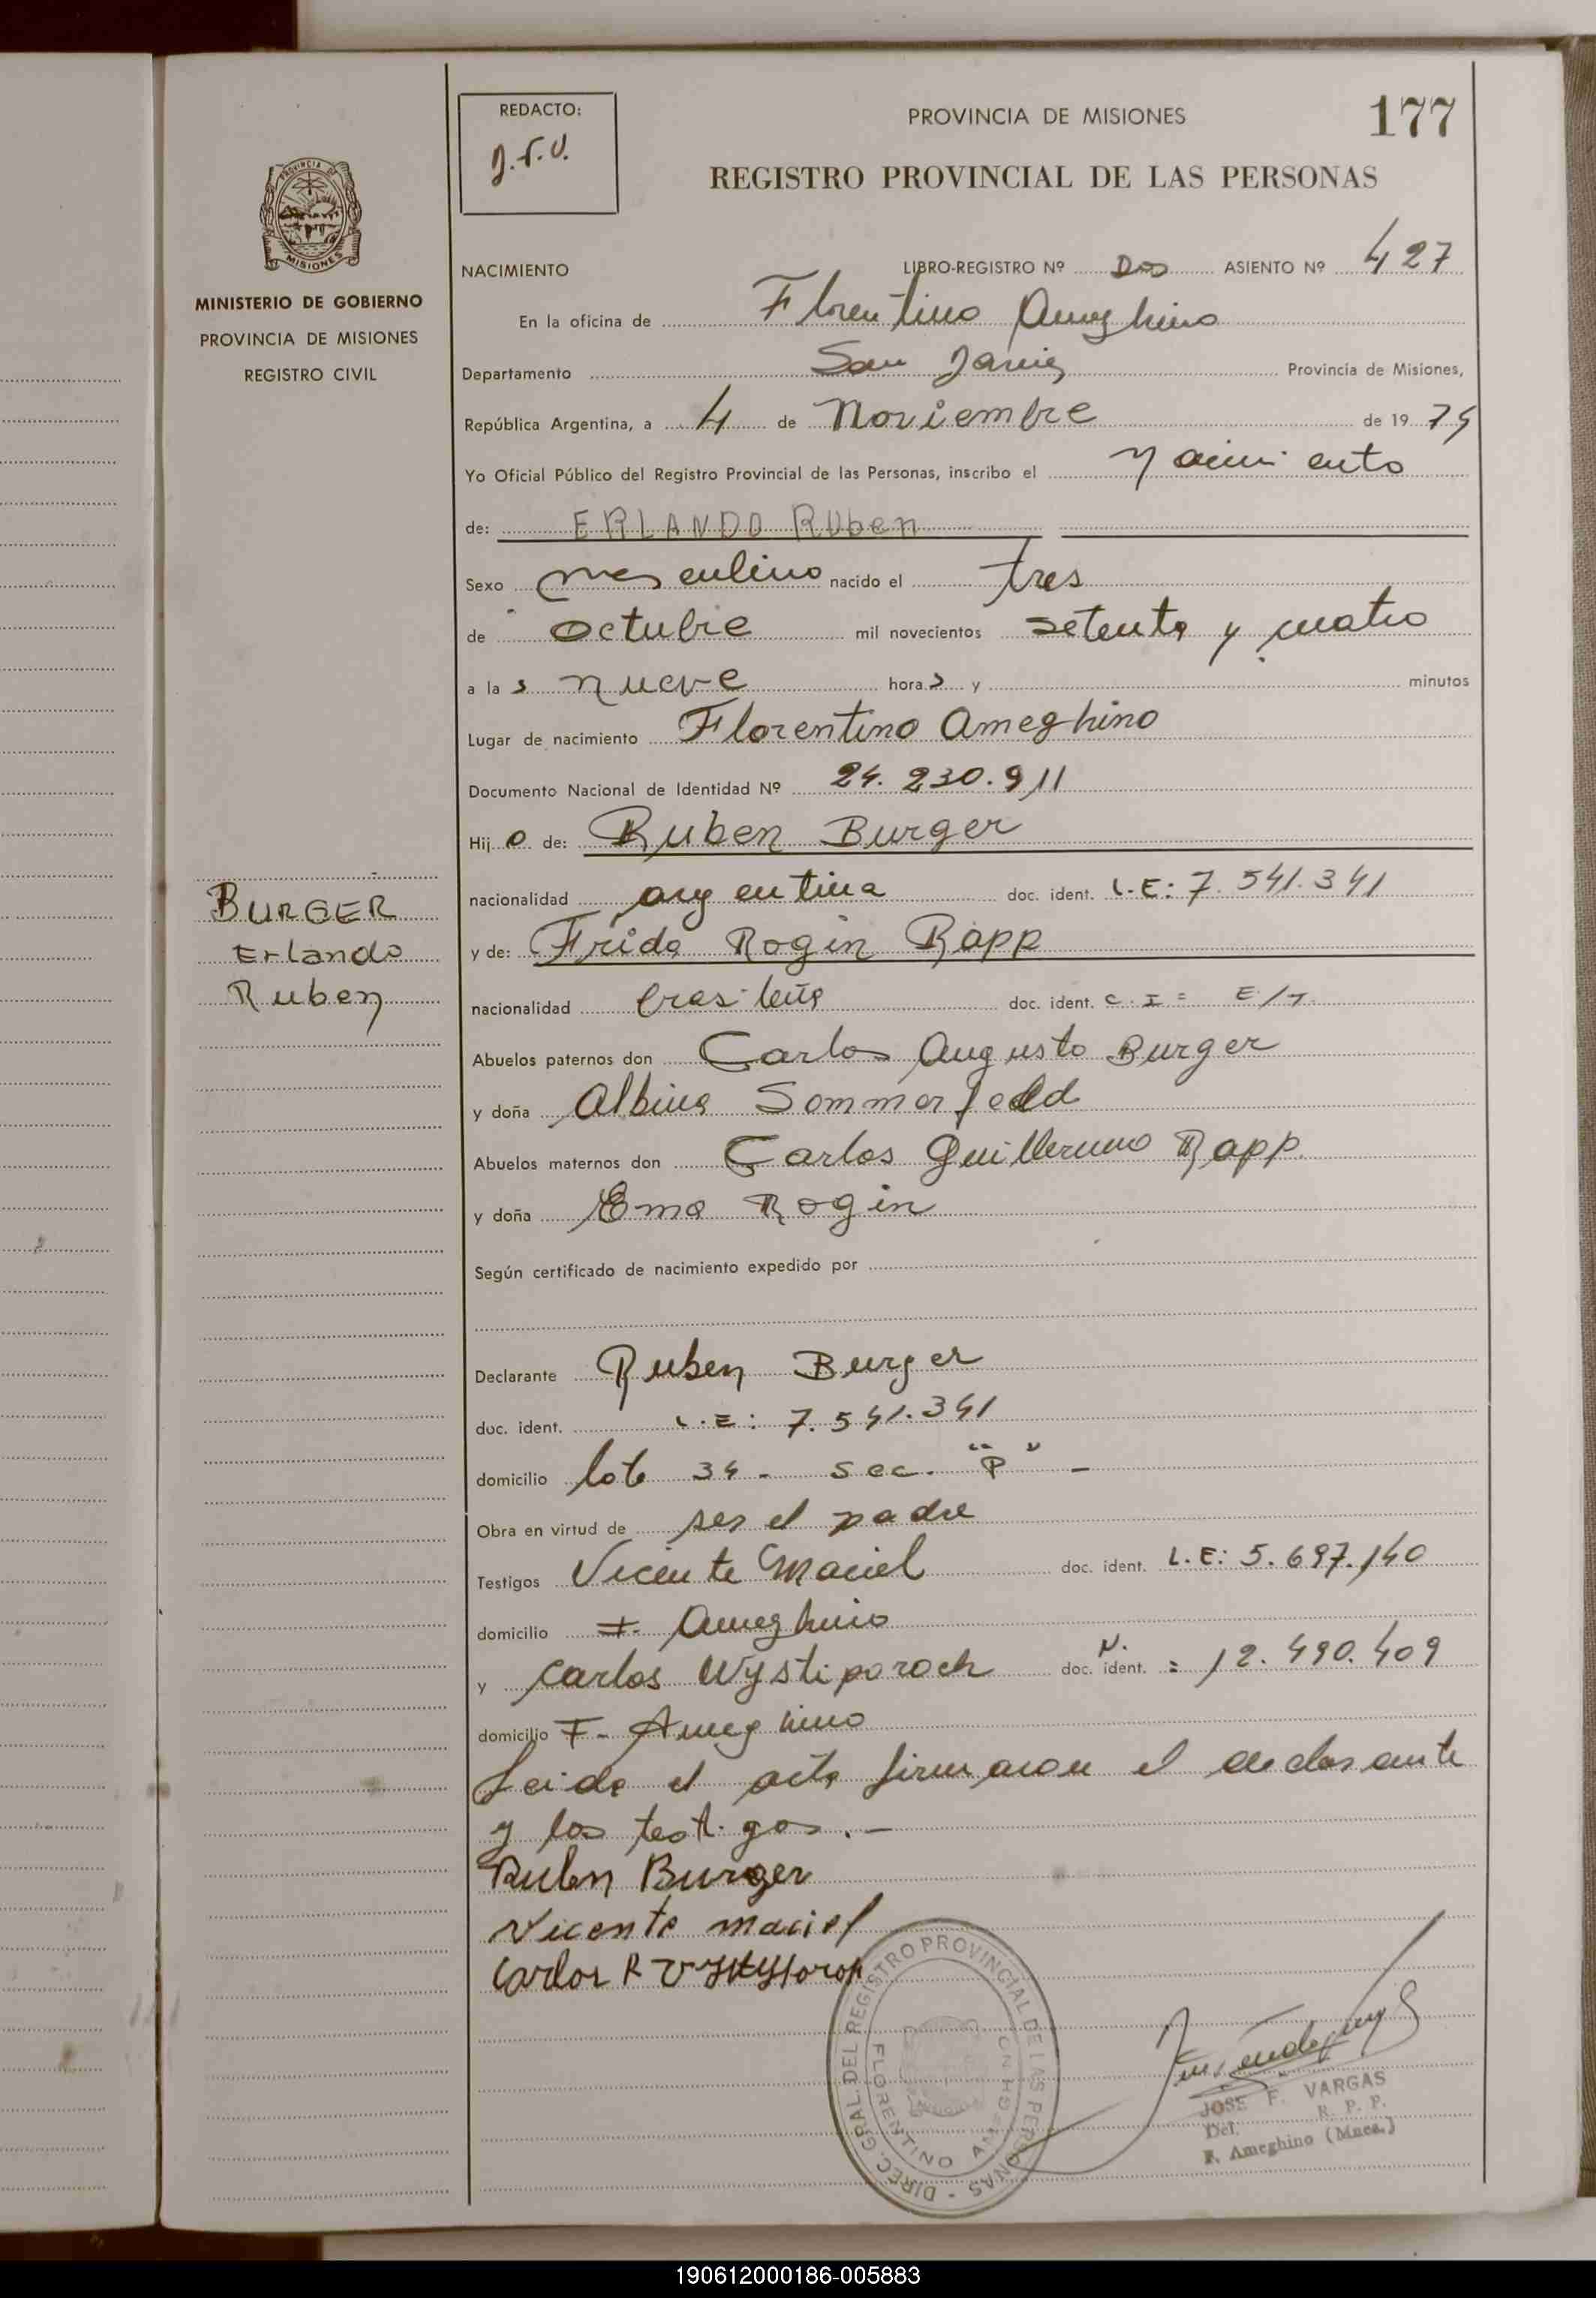 REDACTO:
J.F.V.
PROVINCIA DE MISIONES
177
REGISTRO PROVINCIAL DE LAS PERSONAS
PROVINCIA DE
MISIONES
MINISTERIO DE GOBIERNO
PROVINCIA DE MISIONES
REGISTRO CIVIL
NACIMIENTO LIBRO-REGISTRO Nº Dos ASIENTO Nº 427
En la oficina de Florentino Ameghino
Departamento San Javier Provincia de Misiones,
República Argentina, a 4 de Noviembre de 1974
Yo Oficial Público del Registro Provincial de las Personas, inscribo el nacimiento
de: ERLANDO Ruben
Sexo masculino nacido el tres
de octubre mil novecientos setenta y cuatro
a las nueve horas y minutos
Lugar de nacimiento Florentino Ameghino
Documento Nacional de Identidad Nº 24.230.911
Hijo de: Ruben Burger
nacionalidad argentina doc. ident. L.E: 7.541.341
y de: Frida Rogin Rapp
nacionalidad brasileña doc. ident. C.I= E/T.
Abuelos paternos don Carlos Augusto Burger
y doña Albina Sommerfeld
Abuelos maternos don Carlos Guillermo Rapp.
y doña Ema Rogin
Según certificado de nacimiento expedido por
Declarante Ruben Burger
doc. ident. L.E: 7.541.341
domicilio lote 34 - sec. "P" -
Obra en virtud de ser el padre
Testigos Vicente Maciel doc. ident. L.E: 5.697.140
domicilio F. Ameghino
y Carlos Wystiporoch doc. ident. N. = 12.490.409
domicilio F- Ameghino
Leida el acta firmaron el declarante
y los testigos.-
Ruben Burger
Vicente Maciel
Carlos R
BURGER
Erlando
Ruben
DIREC. GRAL. DEL REGISTRO PROVINCIAL DE LAS PERSONAS -
FLORENTINO AMEGHINO
JOSE F. VARGAS
Del. R. P. P.
F. Ameghino (Mnes.)
190612000186-005883